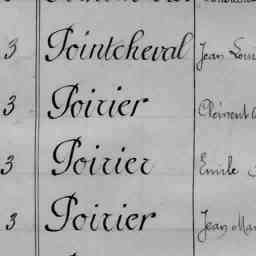 3 Pointcheval Jean Lou
3 Poirier Clément
3 Poirier Emile
3 Poirier Jean Mar